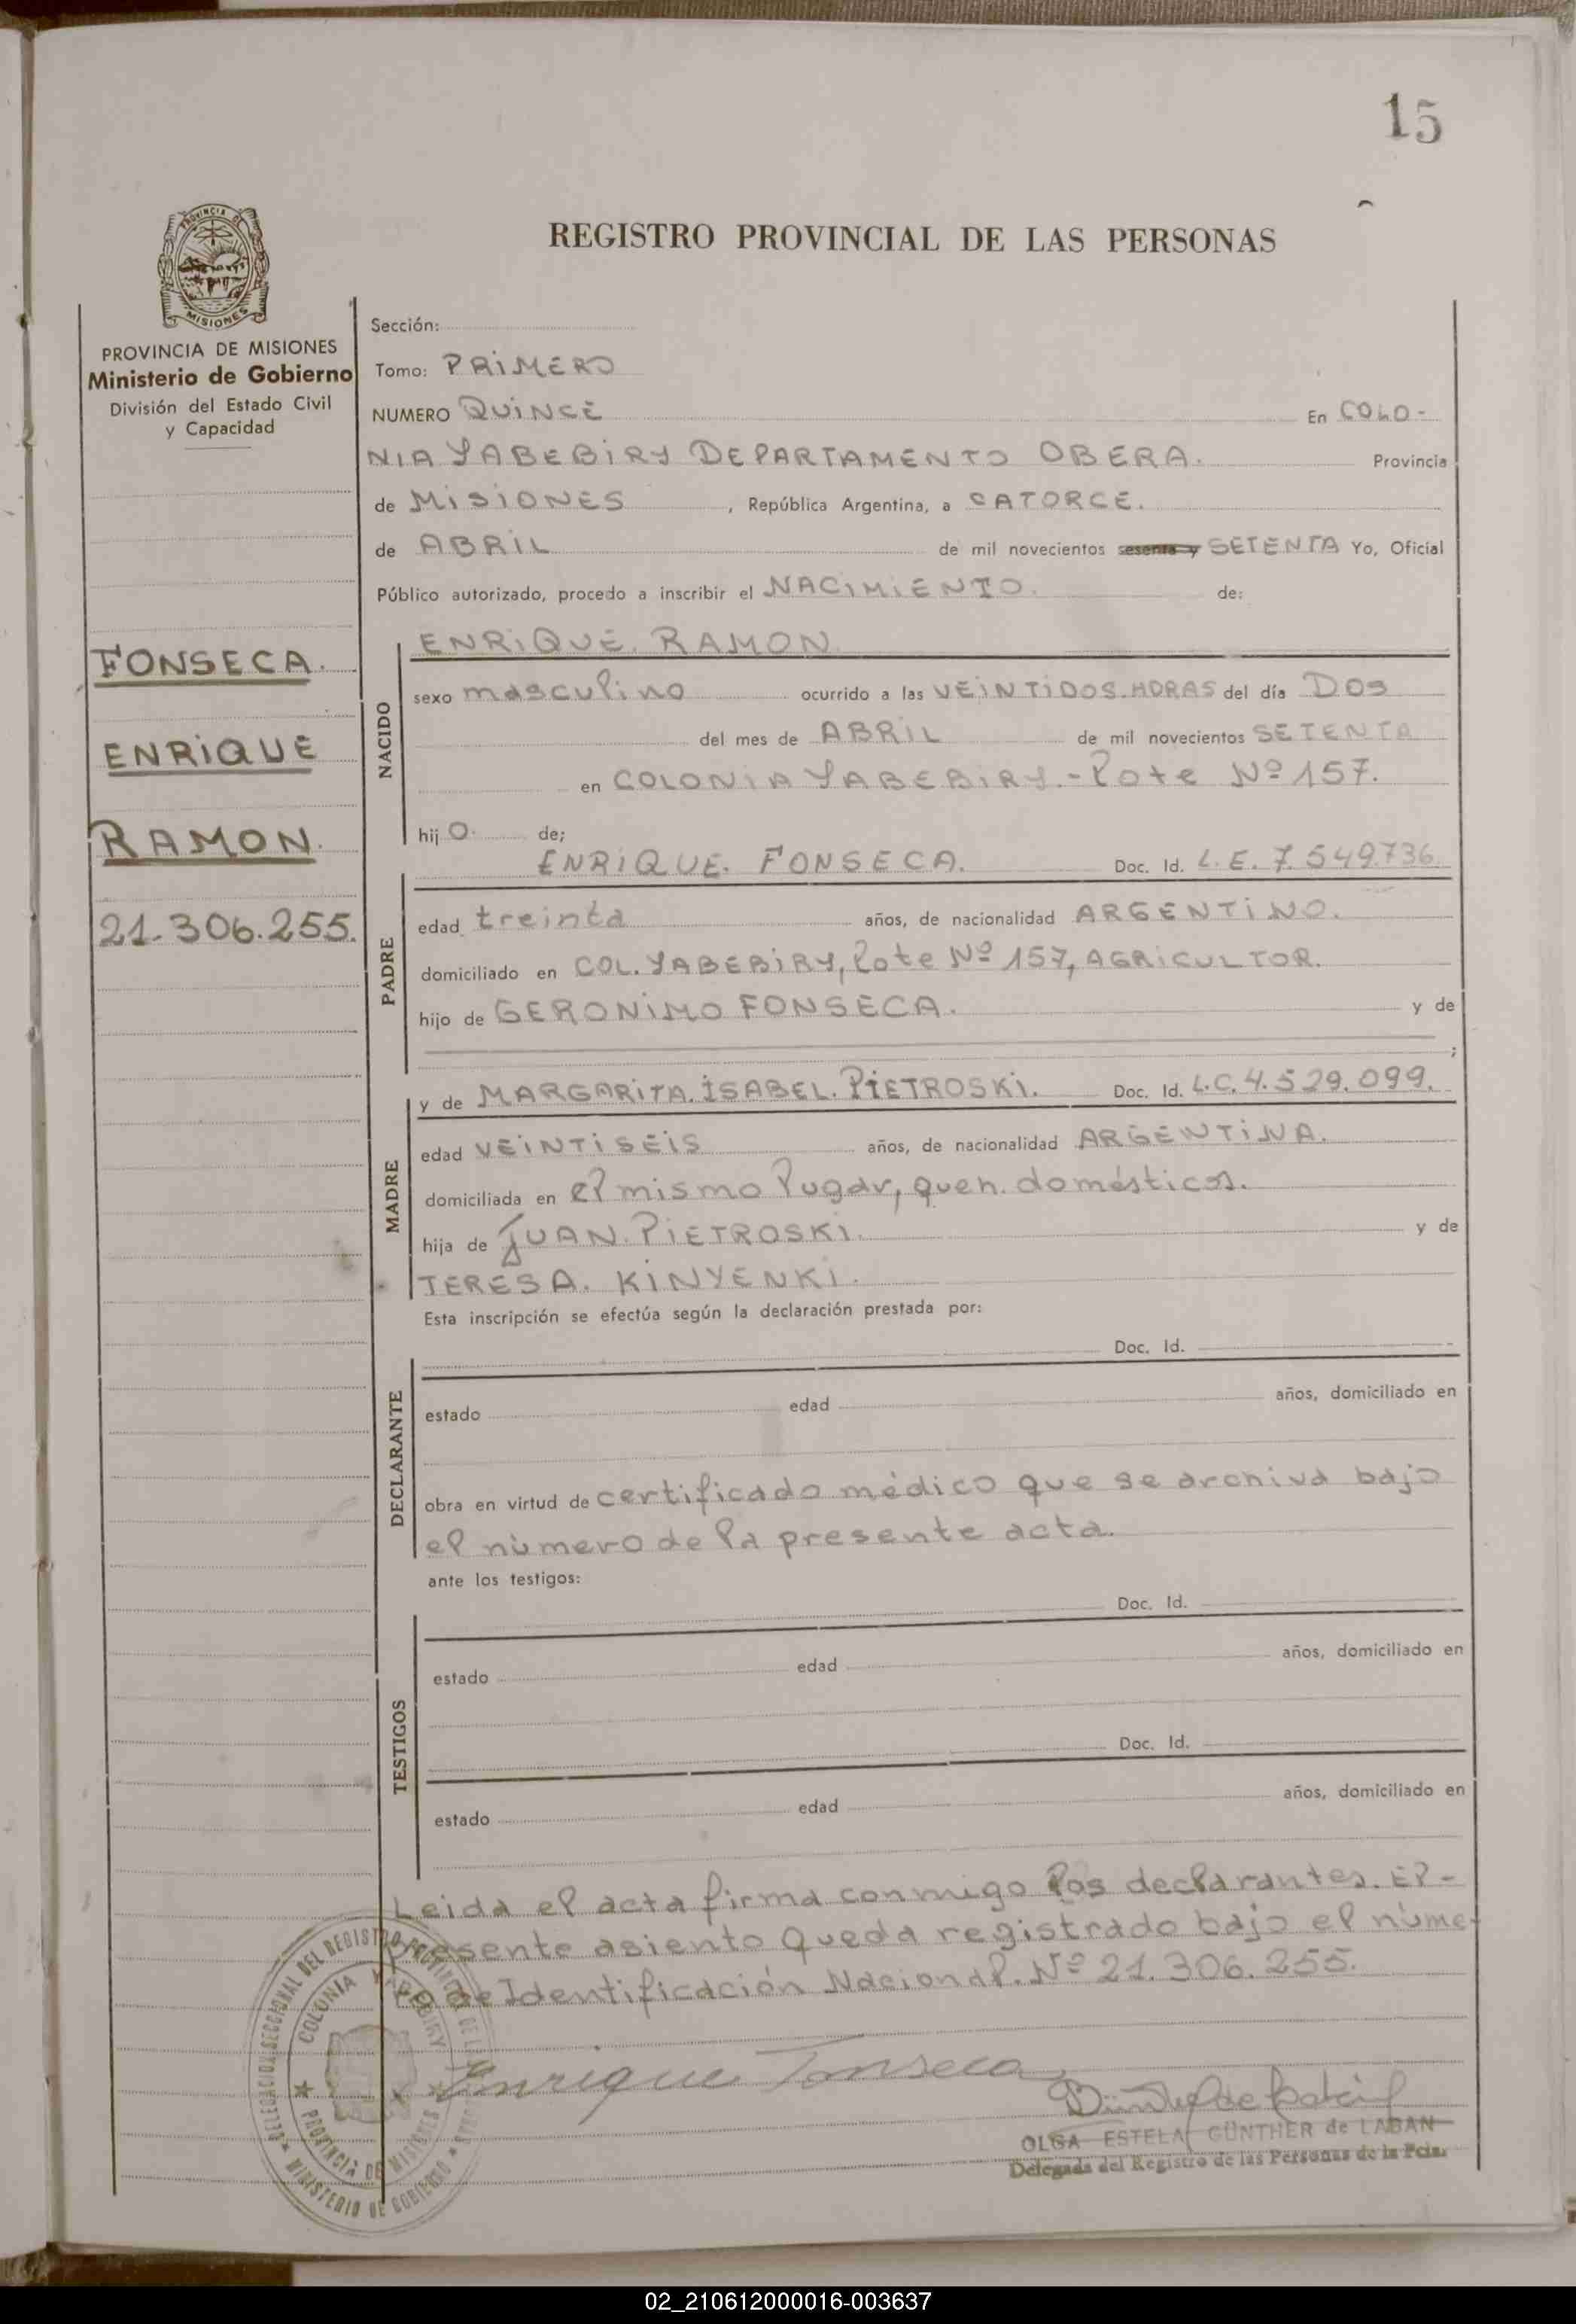 15
REGISTRO PROVINCIAL DE LAS PERSONAS
PROVINCIA DE
MISIONES
PROVINCIA DE MISIONES
Ministerio de Gobierno
División del Estado Civil
y Capacidad
FONSECA.
ENRIQUE
RAMON.
21.306.255.
Sección:
Tomo: PRIMERO
NUMERO QUINCE En COLO-
NIA YABEBIRY DEPARTAMENTO OBERA. Provincia
de MISIONES , República Argentina, a CATORCE.
de ABRIL de mil novecientos sesenta y SETENTA Yo, Oficial
Público autorizado, procedo a inscribir el NACIMIENTO. de:
NACIDO
ENRIQUE. RAMON.
sexo masculino ocurrido a las VEINTIDOS.HORAS del día DOS
del mes de ABRIL de mil novecientos SETENTA
en COLONIA YABEBIRY.- lote Nº 157.
hij O. de;
PADRE
ENRIQUE. FONSECA. Doc. Id. L.E. 7.549.736.
edad treinta años, de nacionalidad ARGENTINO.
domiciliado en COL. YABEBIRY, lote Nº 157, AGRICULTOR.
hijo de GERONIMO FONSECA. y de
;
MADRE
y de MARGARITA. ISABEL. PIETROSKI. Doc. Id. L.C. 4.529.099.
edad VEINTISEIS años, de nacionalidad ARGENTINA.
domiciliada en el mismo lugar, queh. domésticos.
hija de JUAN. PIETROSKI. y de
TERESA. KINYENKI.
Esta inscripción se efectúa según la declaración prestada por:
DECLARANTE
Doc. Id.
estado edad años, domiciliado en
obra en virtud de certificado médico que se archiva bajo
el número de la presente acta.
ante los testigos:
TESTIGOS
Doc. Id.
estado edad años, domiciliado en
Doc. Id.
estado edad años, domiciliado en
Leida el acta firma conmigo los declarantes. El-
presente asiento queda registrado bajo el núme-
ro de Identificación Nacional. Nº 21.306.255.
DELEGACION SECCIONAL DEL REGISTRO PROVINCIAL DE LAS PERSONAS
COLONIA YABEBIRY
PROVINCIA DE MISIONES
MINISTERIO DE GOBIERNO
Enrique Fonseca
OLGA ESTELA GÜNTHER de LABAN
Delegada del Registro de las Personas de la Pcia.
02_210612000016-003637